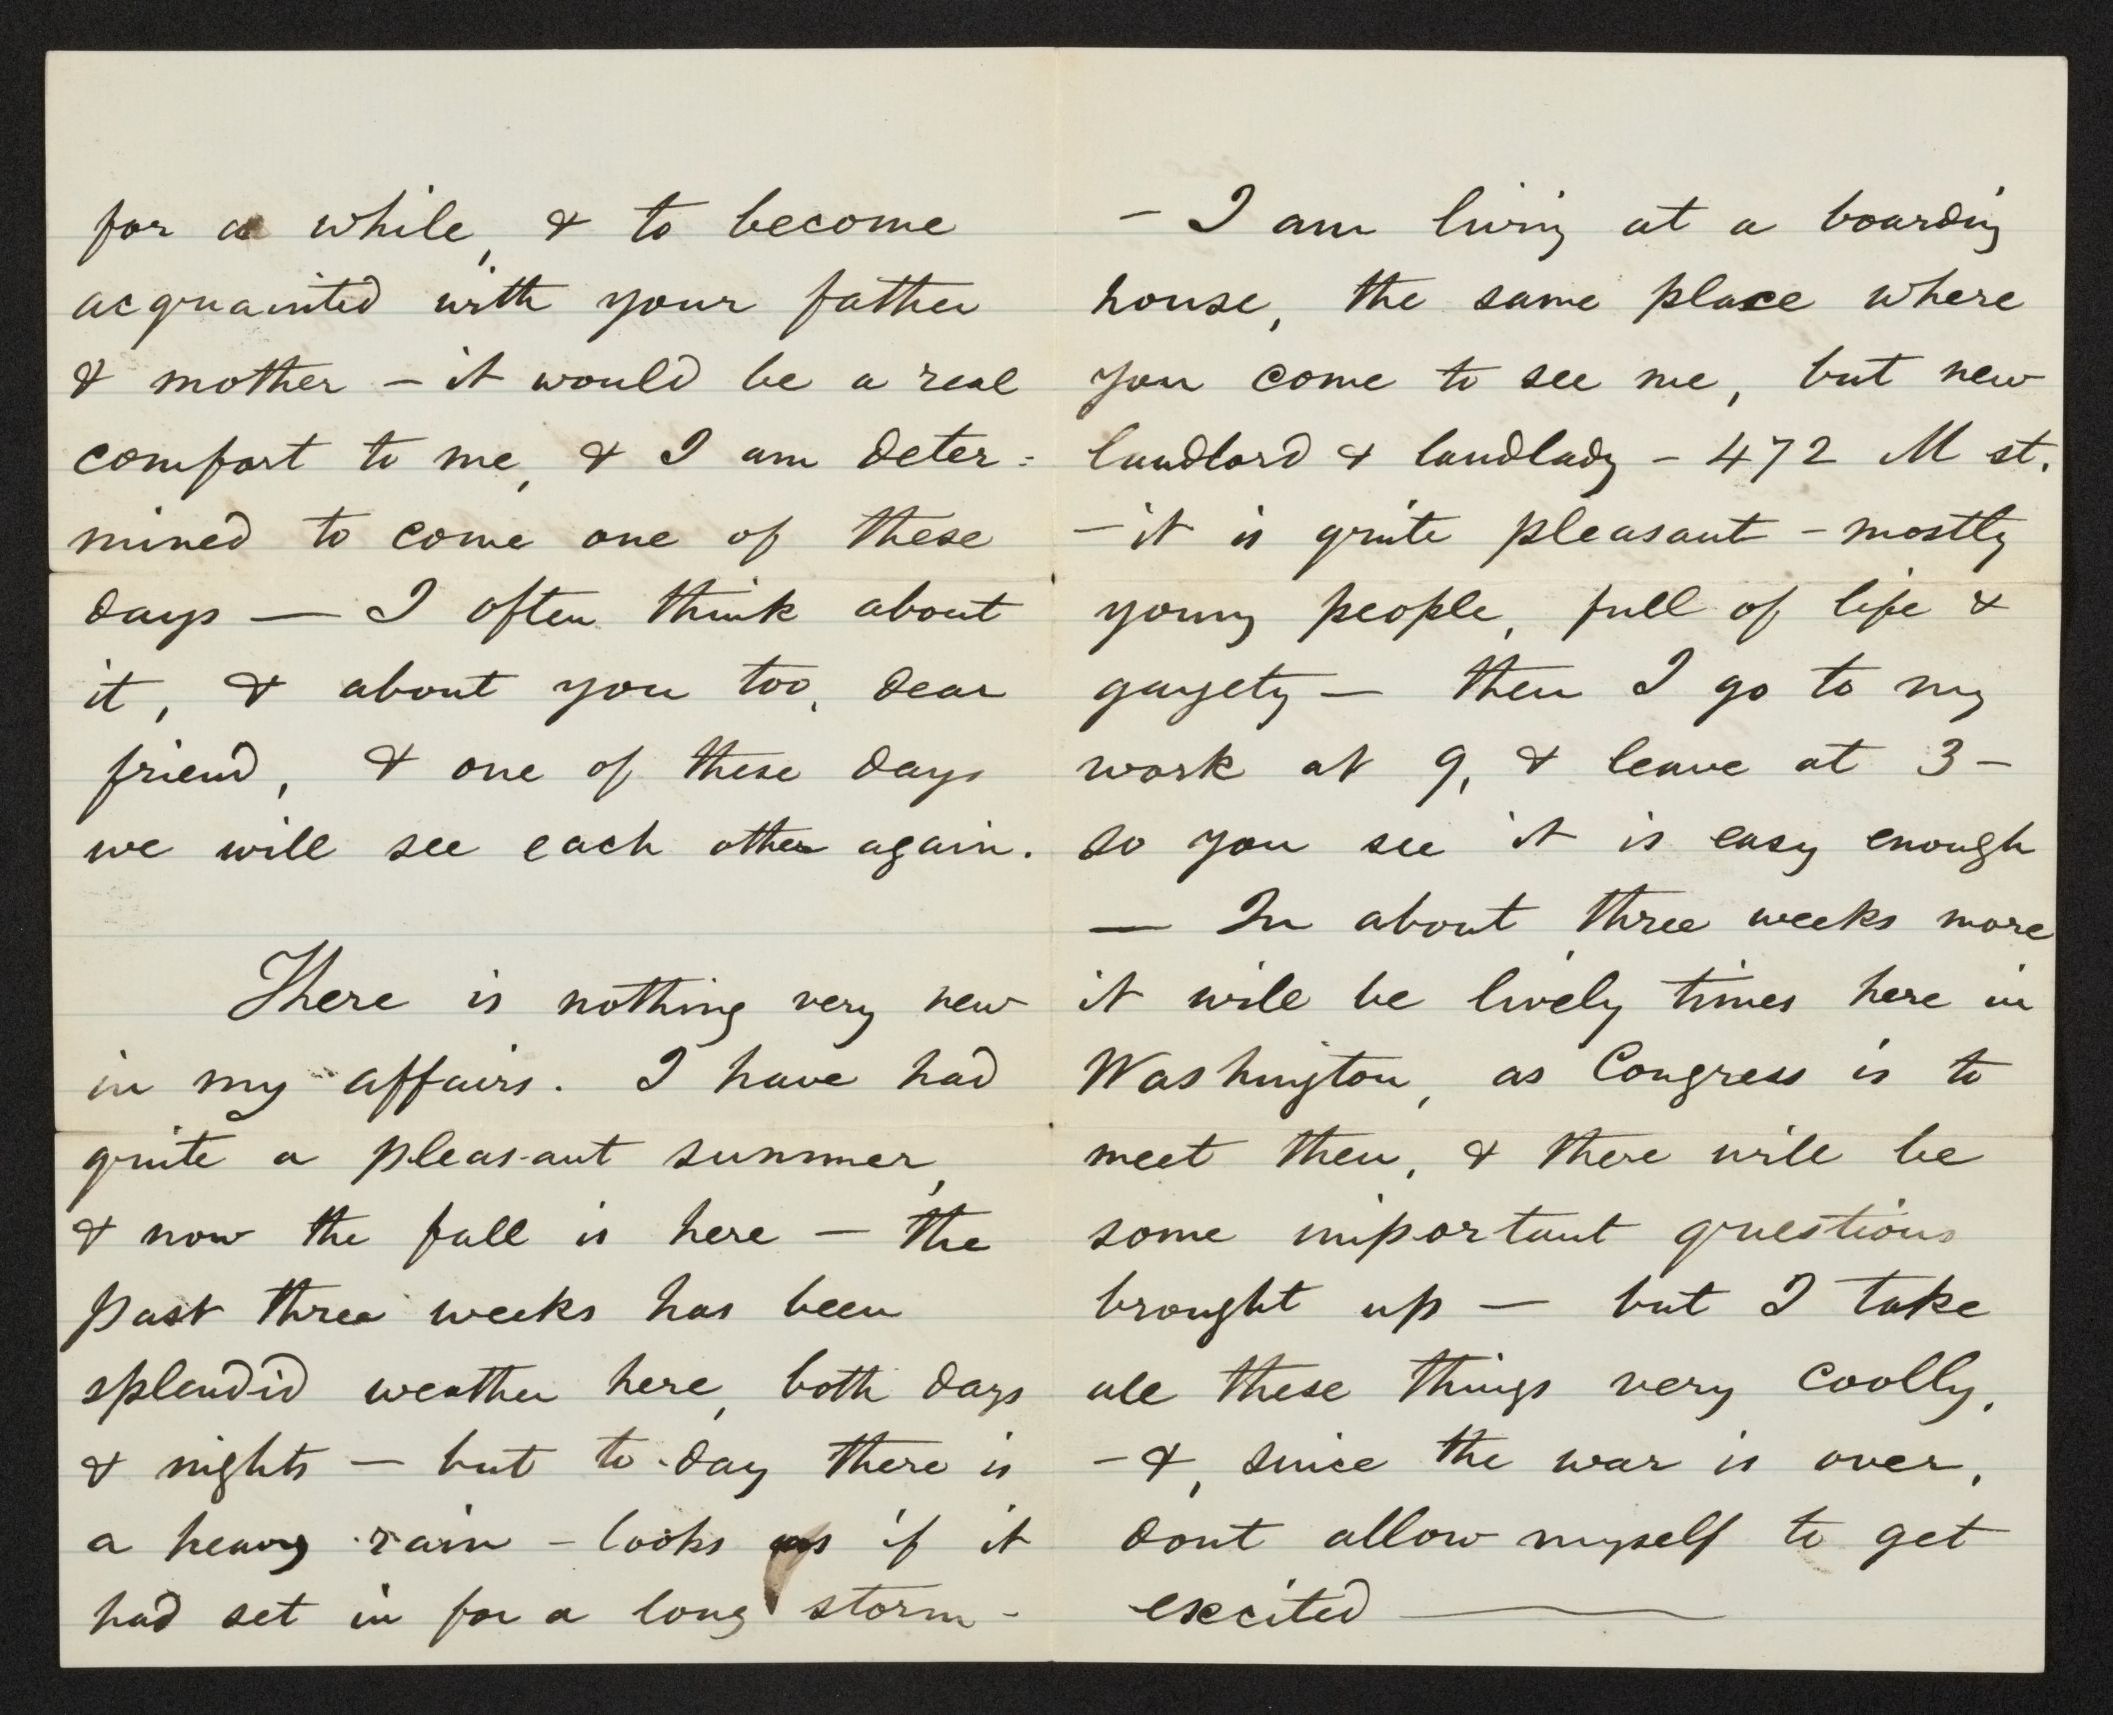 for a while, & to become
acquainted with your father
& mother – it would be a real
comfort to me, & I am deter=
mined to come one of these
days — I often think about
it, & about you too, dear
friend, & one of these days
we will see each other again.
There is nothing very new
in my affairs. I have had
quite a pleasant summer,
& now the fall is here – the
past three weeks has been
splendid weather here, both days
& nights – but to-day there is
a heavy rain – looks as if it
had set in for a long storm –
– I am living at a boarding
house, the same place where
you come to see me, but new
landlord & landlady – 472 M st.
– it is quite pleasant – mostly
young people, full of life &
gayety — then I go to my
work at 9, & leave at 3 –
so you see it is easy enough
— In about three weeks more
it will be lively times here in
Washington, as Congress is to
meet then, & there will be
some important questions
brought up — but I take
all these things very coolly,
– &, since the war is over,
dont allow myself to get
excited ———